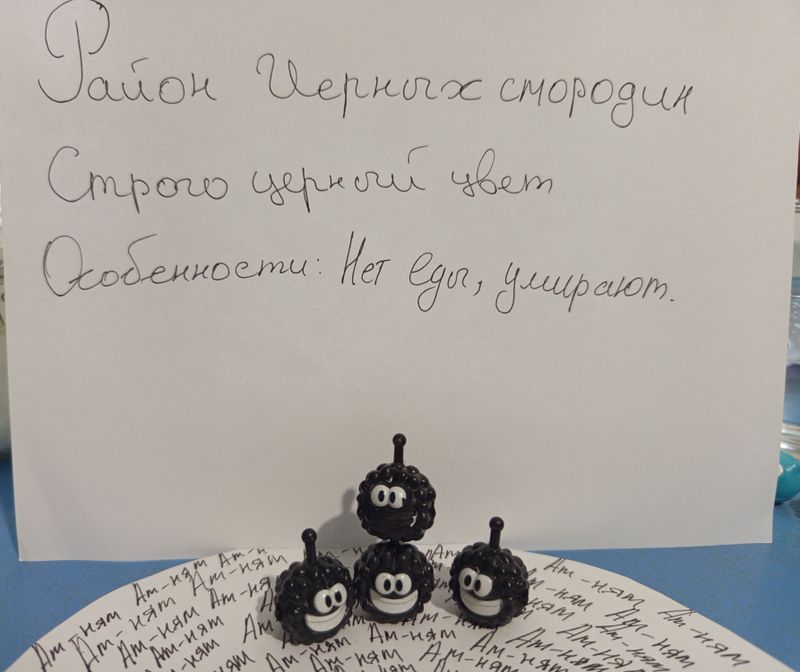 Район Черных смородин
Строго черный цвет
Особенности: Нет еды, умирают.
Ам-ням Ам-ням Ам-ням Ам-ням
Ам-ням Ам-ням Ам-ням Ам-ням
Ам-ням Ам-ням Ам-ням Ам-ням
Ам-ням Ам-ням Ам-ням Ам-ням